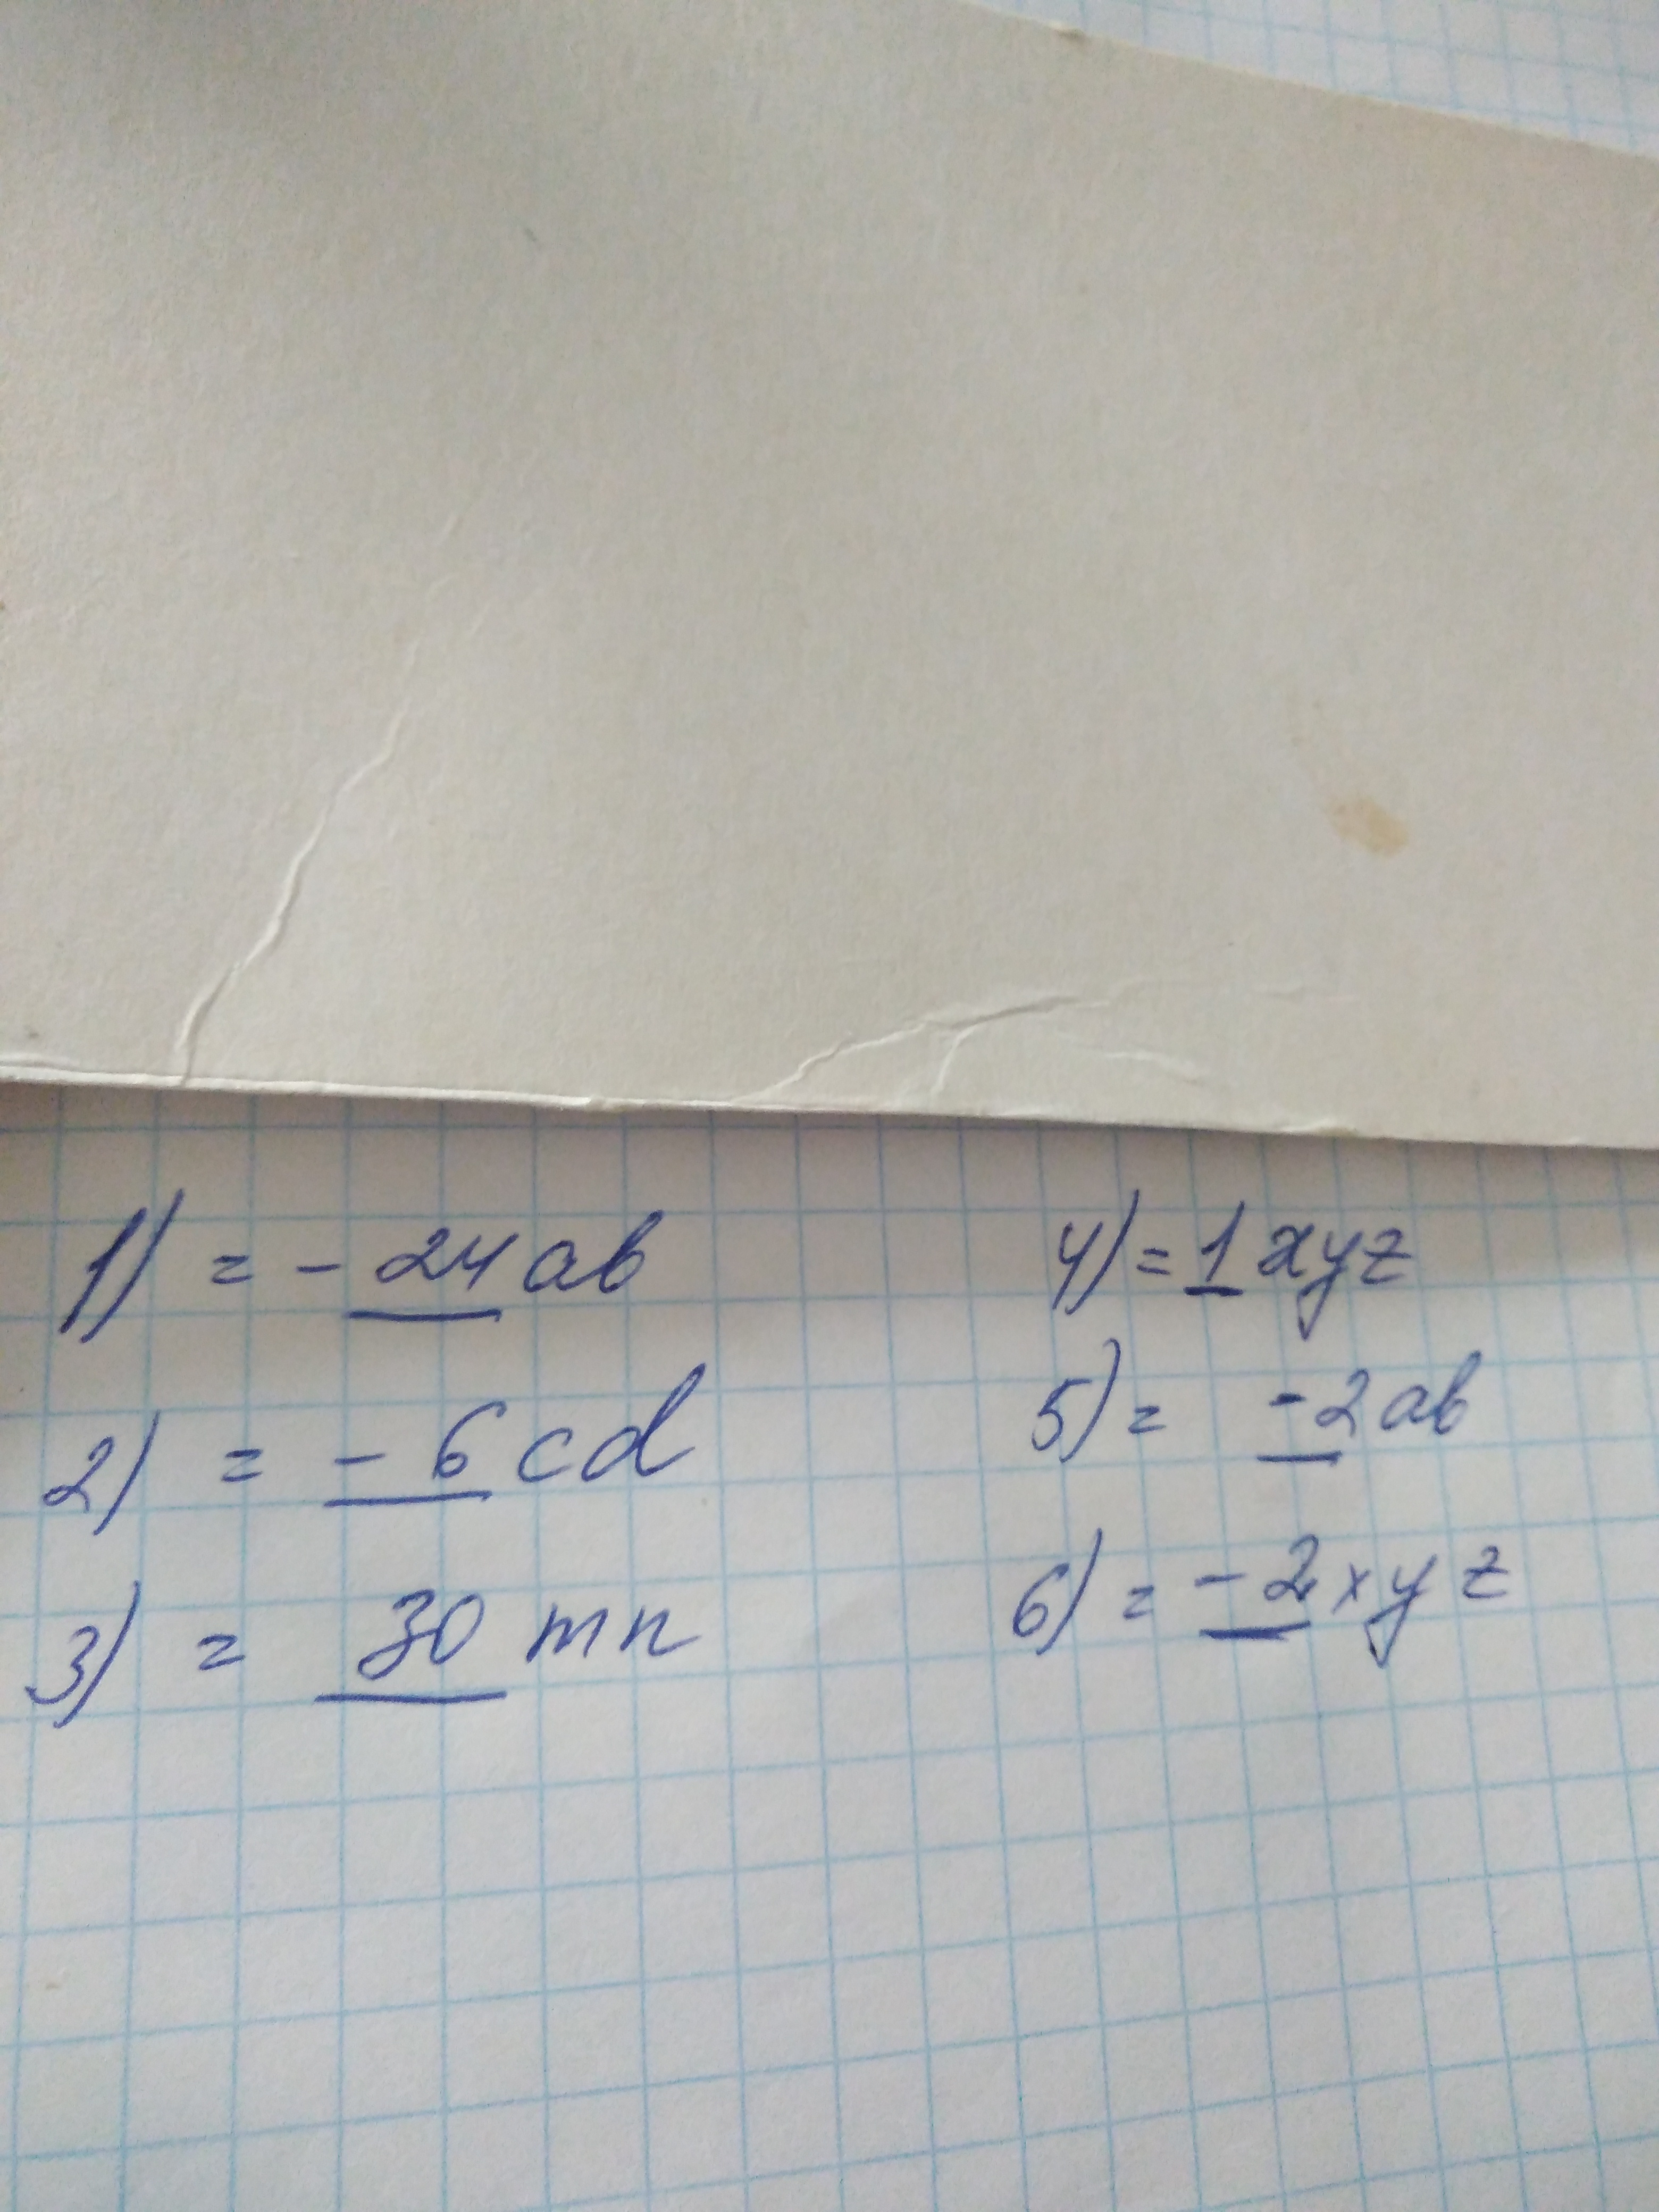 1) = - 24 ab
2) = - 6 cd
3) = 30 mn
4) = 1 xyz
5) = -2 ab
6) = - 2 xyz